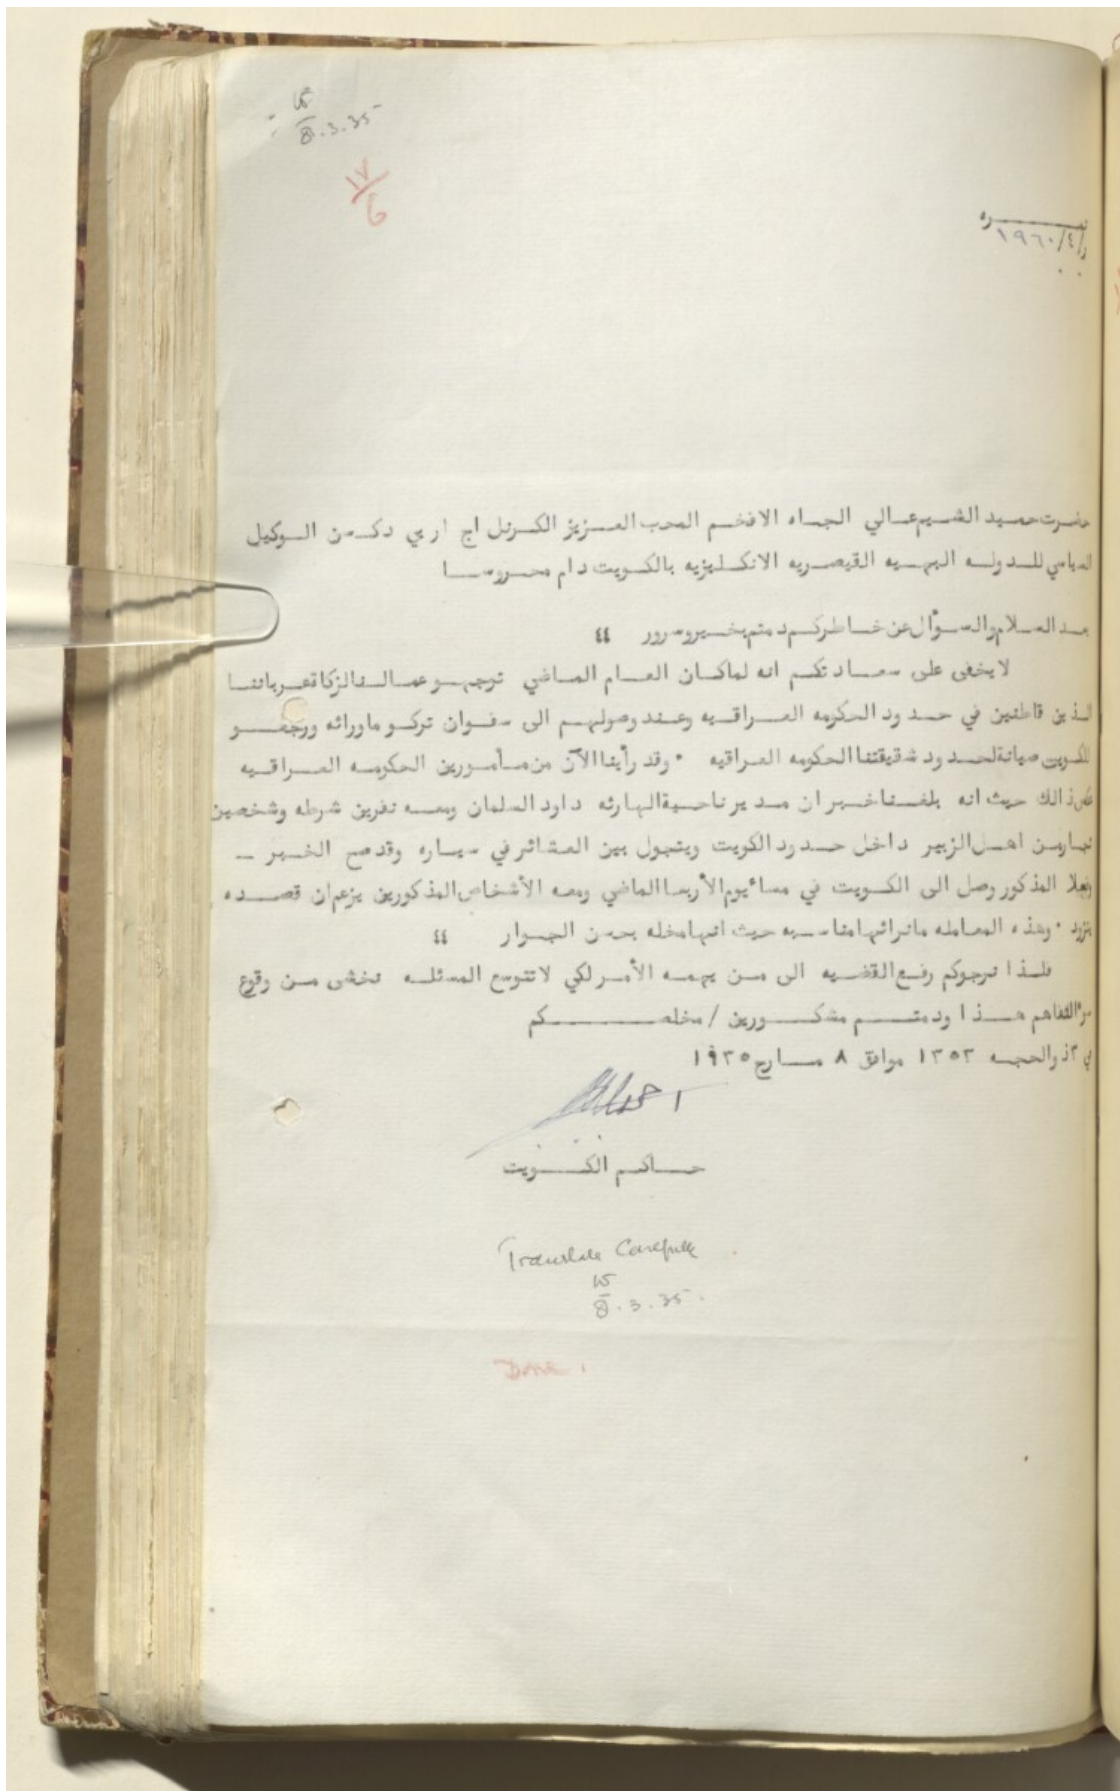 8.3.35
١٧/٦
نمره
ر/٤/١٩٦٠
حضرت حميد الشيم عالي الجاه الافخم المحب العزيز الكرنل اج اربي دكسن الوكيل
السياسي للدوله البهيه القيصريه الانكليزيه بالكويت دام محروسا
بعد السلام والسؤال عن خاطركم دمتم بخير وسرور ٤٤
لا يخفى على سعادتكم انه لما كان العام الماضي توجهو عمالنا لزكاة عرباننا
الذين قاطنين في حدود الحكومه العراقيه وعند وصولهم الى سفوان تركو ماورائه ورجعو
للكويت صيانة لحدود شقيقتنا الحكومه العراقيه ٠ وقد رأينا الآن من مأمورين الحكومه العراقيه
عكس ذالك حيث انه بلغنا خبر ان مدير ناحية الهارثه داود السلمان ومعه نفرين شرطه وشخصين
تجار من اهل الزبير داخل حدود الكويت ويتجول بين العشائر في سياره وقد صح الخبر ــ
وفعلا المذكور وصل الى الكويت في مساء يوم الأربعا الماضي ومعه الأشخاص المذكورين يزعم ان قصده
يتزود ٠ وهذه المعامله مانرائها مناسبه حيث انها مخله بحسن الجوار ٤٤
فلذا نرجوكم رفع القضيه الى من يهمه الأمر لكي لاتتوسع المسئله نخشى من وقوع
سوء التفاهم هذا ودمتم مشكورين / مخلصكم
في ٣ ذوالحجه ١٣٥٣ موافق ٨ مارج ١٩٣٥
حاكم الكويت
Translate Carefully
8.3.35.
Done.